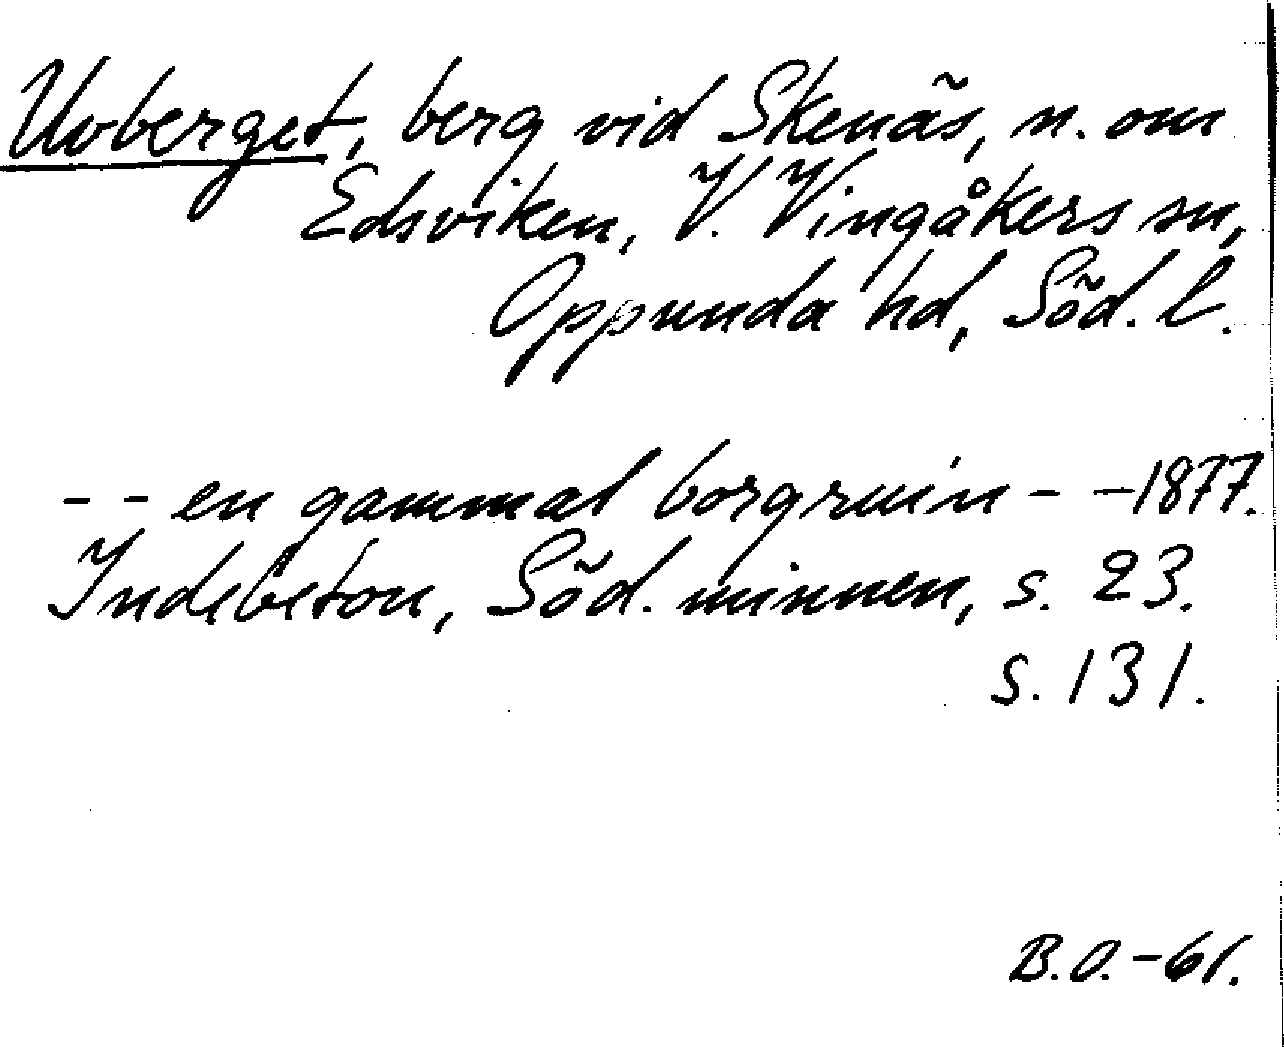 Uvberget, berg vid Skenäs, n. om
Edsviken, V. Vingåkers sn,
Oppunda hd, Söd. l.
- - en gammal borgruin - - 1877.
Indebetou, Söd. minnen, s. 23.
s. 131.
B.O. -61.